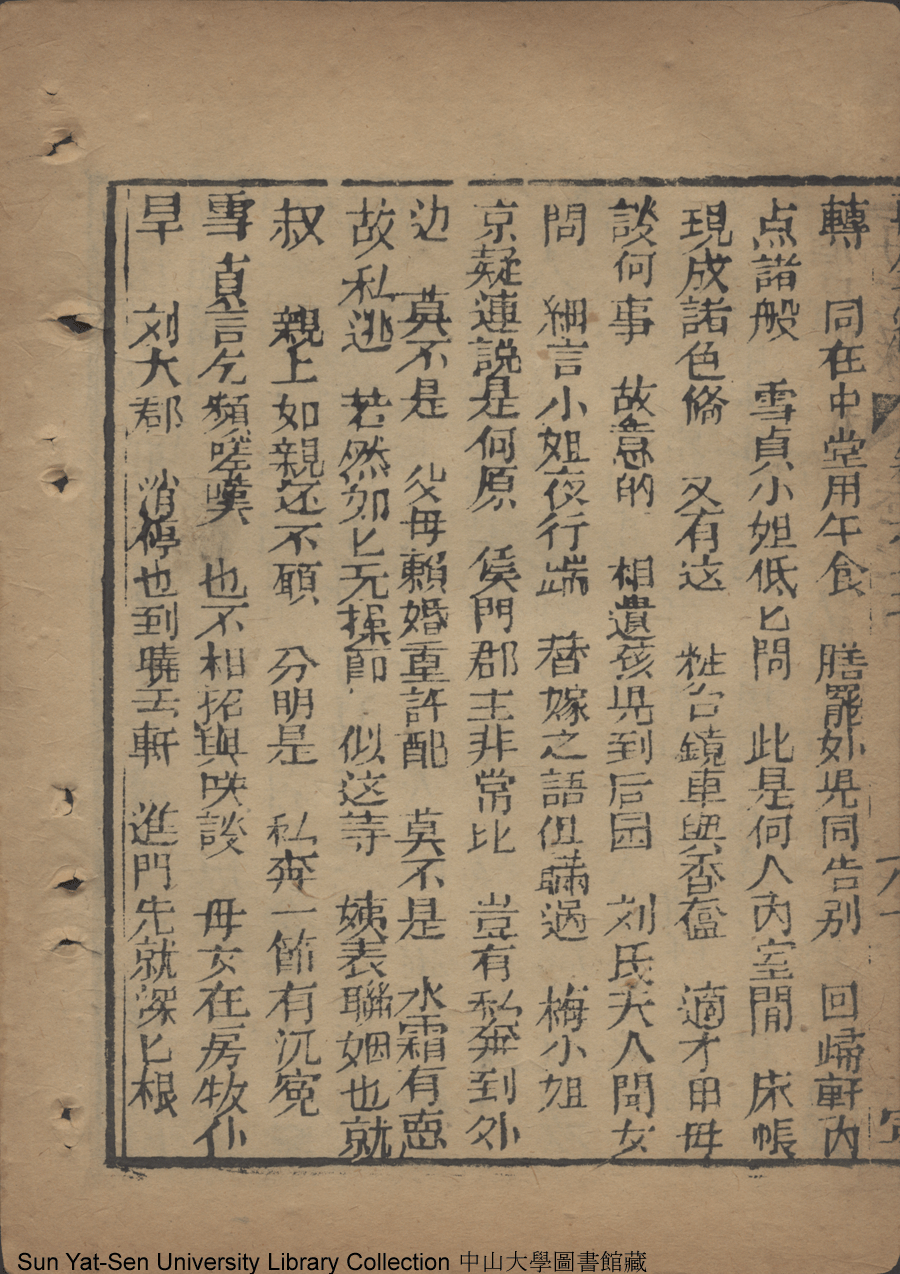 轉　同在中堂用午食　膳罷外児同告别　回歸軒内
点諸般　雪貞小姐低匕問　此是何人内室閒　床帳
現成諸色俻　又有这　粧台鏡車與香奩　適才田母
談何事　故意的　相遺孩児到后园　刘氏夫人問女
問　細言小姐夜行端　替嫁之語但瞞過　梅小姐
京疑連説是何原　侯門郡主非常比　豈有私奔到外
边　莫不是　父母賴婚重許配　莫不是　水霜有恋
故私逃　若然如匕无操節　似这等　姨表聯姻也就
叔　親上如親还不願　分明是　私奔一節有沉寃
雪貞言乞頻嗟嘆　也不相招與映談　母女在房牧仆
早　刘大郡　消停也到曉云軒　進門先就深匕根
Sun Yat-Sen University Library Collection 中山大學圖書館藏